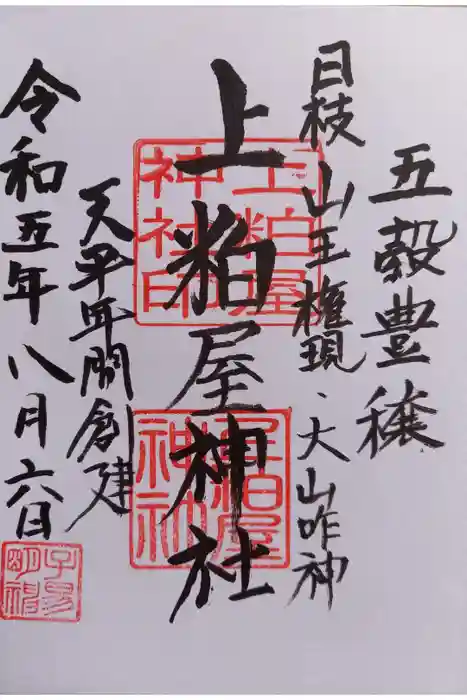 五穀豊穣
日枝山王権現・大山咋神
上粕屋神社
天平年間創建
令和五年八月六日
上粕屋
神社印
子易
明神